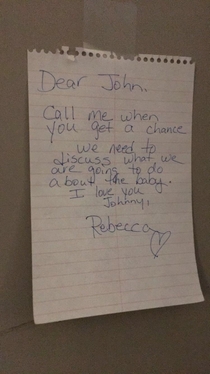 Dear John.
Call me when
you get a chance
we need to
discuss what we
are going to do
about the baby.
I love you
Johnny,
Rebecca